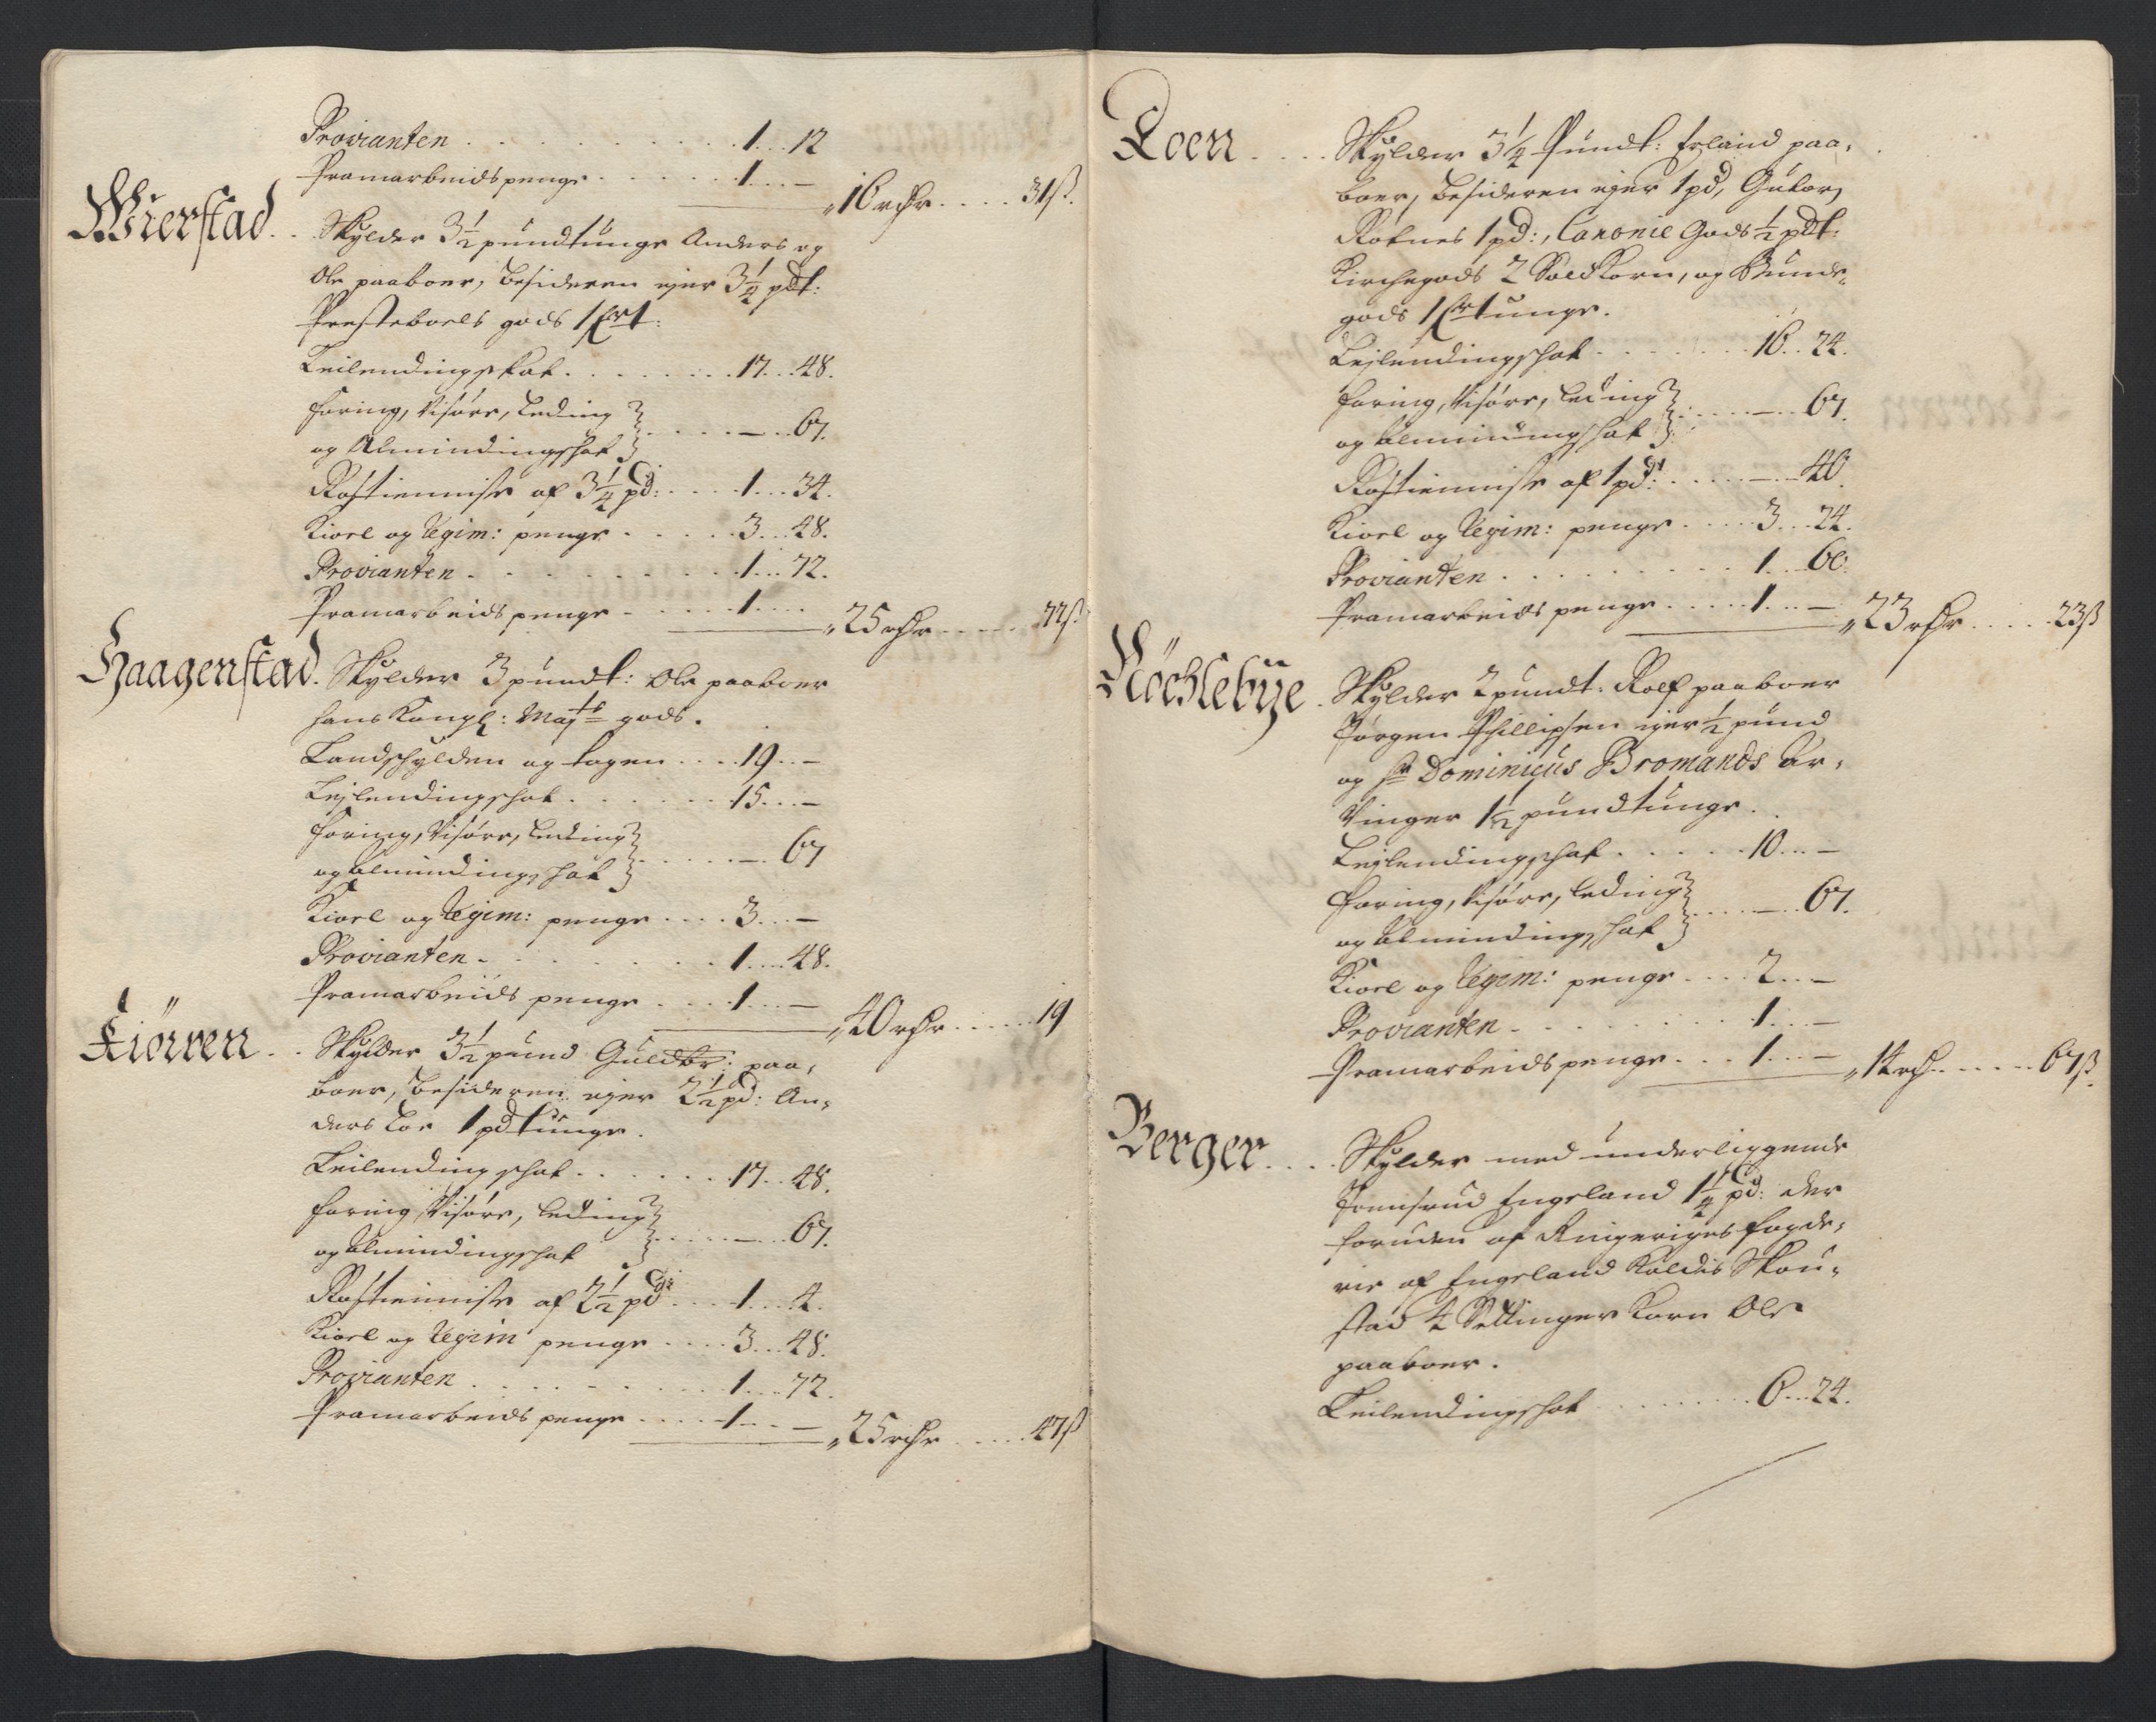 Provianten . . . . . . . . . 1 . . . 12
Pramarbeidspenge . . . . . . 1 . . . — 16 rdr . . . . 31ß.
Wierstad . . Skylder 3½ pundtunge Anders og
Ole paaboer, besideren ejer 3¼ pdt:
Presteboels gods 1 frt:
Leilendingskat . . . . . . . 17 . . . 48.
foring, Visøre, Leding
og Almindingskat . . . . — . . 67.
Rostienniste af 3¼ pd: . . . . 1 . . . 34.
Kioel og Regim: penge . . . . . 3 . . . 48.
Provianten . . . . . . . . . 1 . . . 72.
Pramarbeids penge . . . . . 1 . . . . 25 rdr . . . . . 77ß
Haagenstad. Skylder 3 pundt: Ole paaboer
hans Kongl: Mayts gods.
Landschylden og tagen . . . 19 . . —
Lejlendingschat . . . . . . 15 . . . —
foring, Visøre, Leding
og Almindingschat . . . . . — . . 67
Kioel og Regim: penge . . . . 3 . . . —
Provianten . . . . . . . . 1 . . . . 48.
Pramarbeids penge . . . . 1 . . . — 40 rdr . . . . . 19
Kiørren . . Skylder 3½ pund Guldbr: paa,
boer, besideren ejer 2½ pd: An,
ders Loe 1 pd tunge.
Leilendingschat . . . . . . 17 . . 48.
foring, Visøre, Leding
og Almindingschat . . . . . — . . . 67.
Rostienniste af 2½ pd: . . . 1 . . . 4.
Kioel og Regim penge . . . . 3 . . . 48.
Provianten . . . . . . . . 1 . . . . 72.
Pramarbeids penge . . . . 1 . . . — 25 rdr . . . . . 47ß
Loen . . . . Skylder 3¼ Pundt: Erland paa,
boer, besideren ejer 1 pd, Gutorm
Rotnes 1 pd:, Canonie Gods ½ pdt:
Kirchegods 2 Sold Korn, og Bunde,
gods 1 frtunge.
Lejlendingschat . . . . . . . 16 . . 24.
foring, Visøre, leding
og Almindingschat . . . . — . . 67.
Rostienniste af 1 pd: . . . . . — . . 40.
Kioel og Regim: penge . . . . . 3 . . . 24.
Provianten . . . . . . . . . 1 . . . 60.
Pramarbeids penge . . . . . 1 . . . — 23 rdr . . . . . 23ß
Røchlebye . Skylder 2 pundt: Rolf paaboer
Jørgen Phillipsen ejer ½ pund
og Sr Dominicus Bromands Ar,
Vinger 1½ pundtunge.
Lejlendingschat . . . . . 10 . . . —
foring, Visøre, leding
og Almindingschat . . . . — . . 67.
Kioel og Regim: penge . . . . 2 . . . —
Provianten . . . . . . . . . 1 . . . —
Pramarbeidspenge . . . . 1 . . . — 14 rd . . . . . . 67ß.
Berger . . . . Skylder med underliggende
Engeland 1¼ pd: der
foruden af Ringeriges fogde,
rie af Engeland Kaldis Skou,
stad 4 Settinger Korn Ole
paaboer.
Leilendingschat . . . . . . . . . 6 . . . 24.